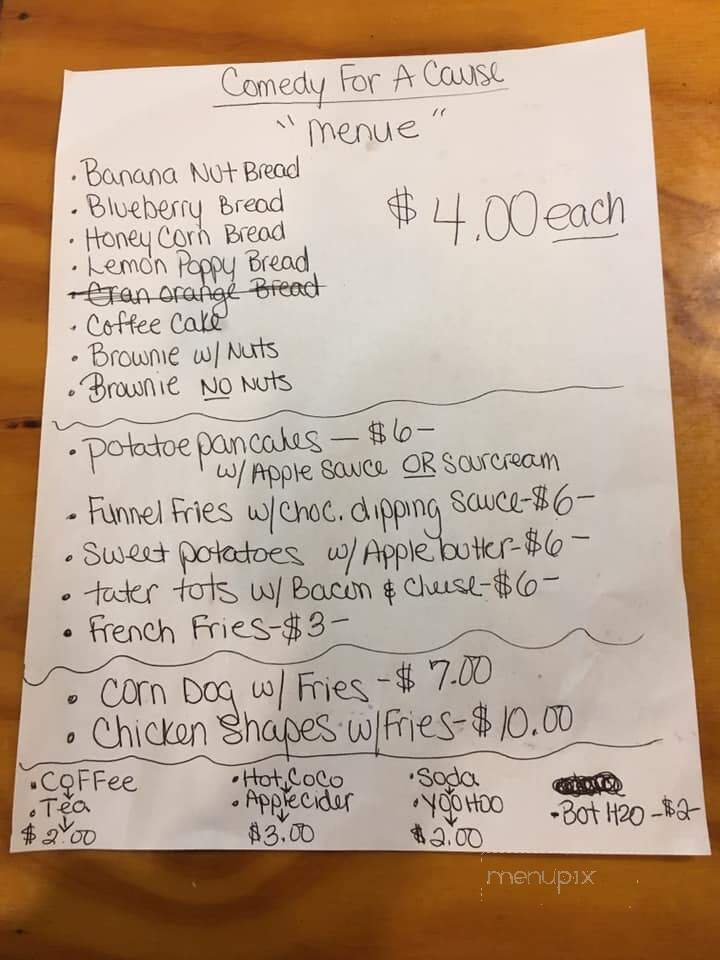 Comedy For A Cause
"Menue"
• Banana Nut Bread
• Blueberry Bread
$4.00 each
• Honey Corn Bread
• Lemon Poppy Bread
• Cran orange Bread
• Coffee Cake
• Brownie w/ Nuts
• Brownie NO Nuts
• potatoe pancakes — $6-
w/ Apple Sauce OR Sourcream
• Funnel Fries w/choc. dipping Sauce-$6-
• Sweet potatoes w/ Apple butter-$6-
• tater tots w/ Bacon & cheese-$6-
• French Fries-$3-
• Corn Dog w/ Fries -$ 7.00
• Chicken Shapes w/Fries-$10.00
• COFFee
• Tea
$2.00
• Hot Coco
• Applecider
$3.00
• Soda
• Yoo Hoo
$2.00
• Bot H2O -$2-
menupix